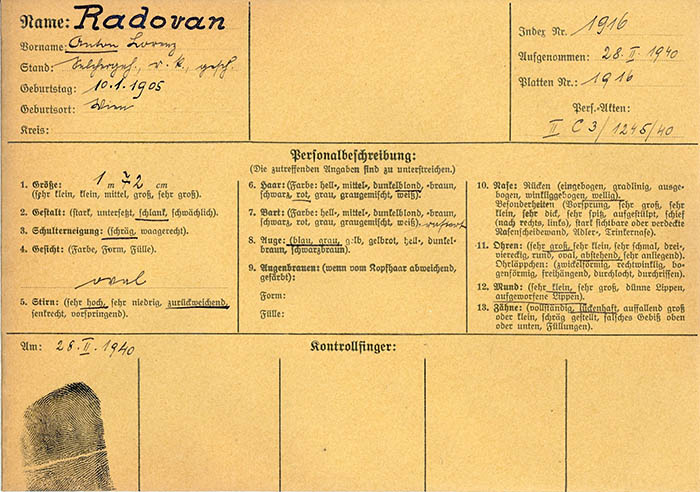 Name: Radovan
Vorname: Anton Lorenz
Stand: Selchergeh., r. k., gesch.
Geburtstag: 10.1.1905
Geburtsort: Wien
Kreis:
Index Nr. 1916
Aufgenommen: 28.II.1940
Platten Nr.: 1916
Pers.-Akten:
II C 3/1245/40
Personalbeschreibung:
(Die zutreffenden Angaben sind zu unterstreichen.)
1. Größe: 1 m 72 cm
(sehr klein, klein, mittel, groß, sehr groß).
2. Gestalt: (stark, untersetzt, schlank, schwächlich).
3. Schulterneigung: (schräg, waagerecht).
4. Gesicht: (Farbe, Form, Fülle).
oval
5. Stirn: (sehr hoch, sehr niedrig, zurückweichend,
senkrecht, vorspringend).
6. Haar: (Farbe: hell-, mittel-, dunkelblond, -braun,
schwarz, rot, grau, graugemischt, weiß).
7. Bart: (Farbe: hell-, mittel-, dunkelblond, -braun,
schwarz, rot, grau, graugemischt, weiß). rasiert
8. Auge: (blau, grau, gelb, gelbrot, hell-, dunkel-
braun, schwarzbraun).
9. Augenbrauen: (wenn vom Kopfhaar abweichend,
gefärbt):
Form:
Fülle:
10. Nase: Rücken (eingebogen, gradlinig, ausge-
bogen, winkliggebogen, wellig).
Besonderheiten (Vorsprung, sehr groß, sehr
klein, sehr dick, sehr spitz, aufgestülpt, schief
(nach rechts, links), stark sichtbare oder verdeckte
Nasenscheidewand, Adler-, Trinkernase).
11. Ohren: (sehr groß, sehr klein, sehr schmal, drei-,
viereckig, rund, oval, abstehend, sehr anliegend).
Ohrläppchen: (zwickelförmig, rechtwinklig, bo-
genförmig, freihängend, durchlocht, durchrissen).
12. Mund: (sehr klein, sehr groß, dünne Lippen,
aufgeworfene Lippen).
13. Zähne: (vollständig, lückenhaft, auffallend groß
oder klein, schräg gestellt, falsches Gebiß oben
oder unten, Füllungen).
Am: 28.II.1940
Kontrollfinger: